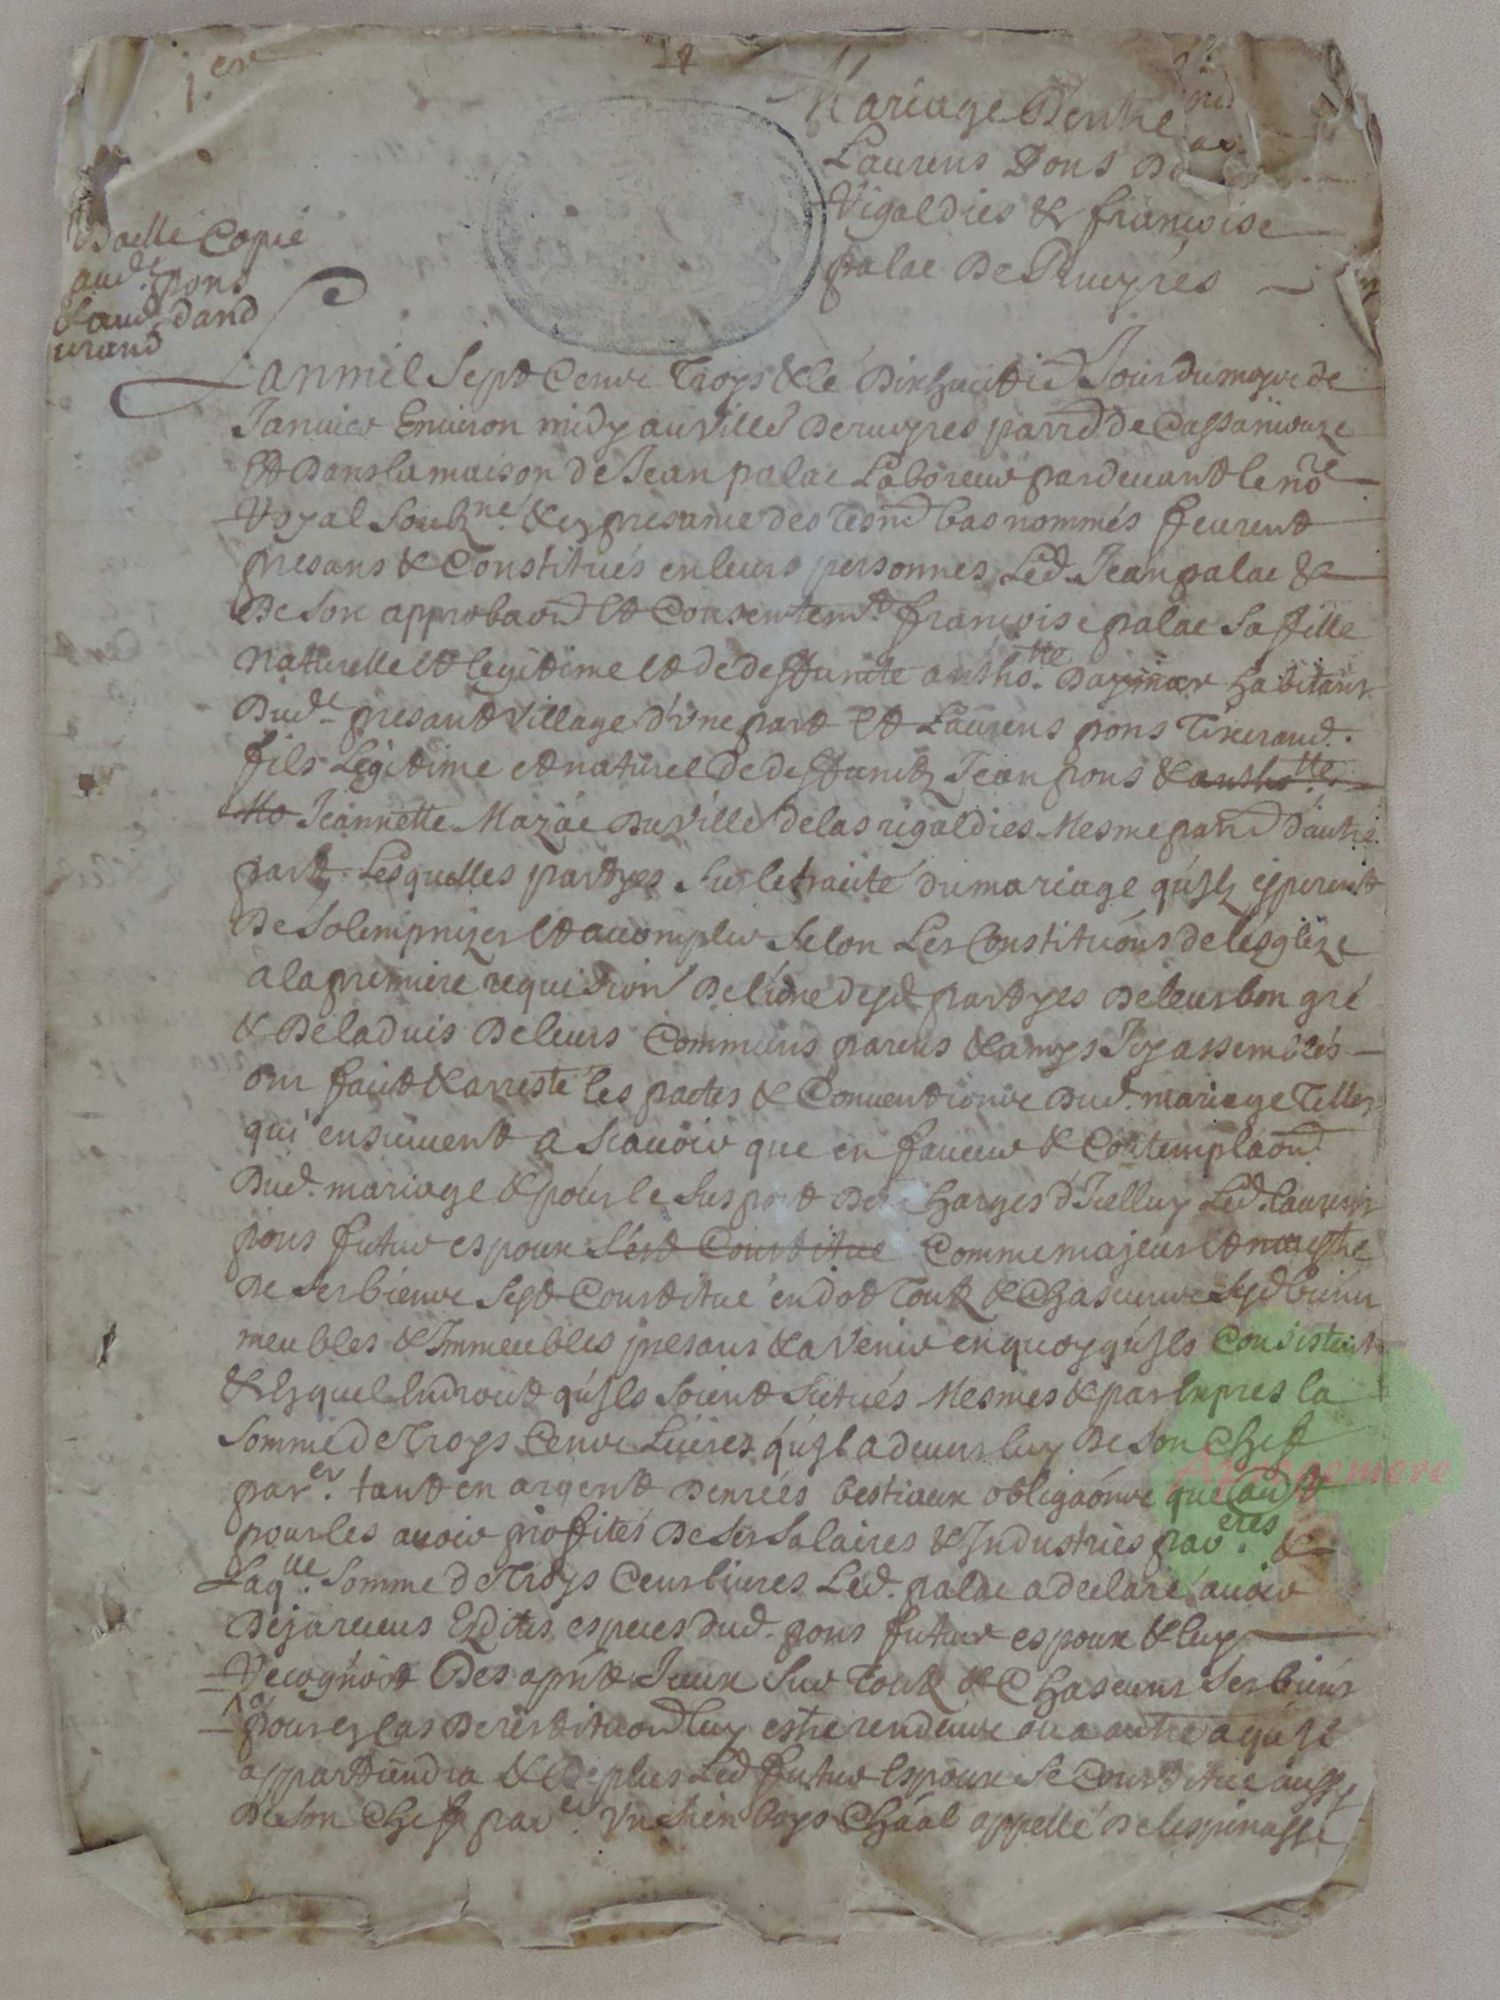 1.ere
Mariage D'entre
Laurens Pons De
Rigaldies & françoise
palac De Rueyres
Baillé Copie
aud. pons
L'an mil Sept Cens Troys & le Dixhuitie Jour du moys de
Janvier Environ midy au villa De rueyres parr de Cassaniouze
Et Dans la maison de Jean palac Laboreur pardevant le nore
Royal Soubzné & en presance des tesm bas nommés feurent
presans & Constitués en leurs personnes Led. Jean palac &
De Son approbaon Et Consentemt françoise palac Sa fille
Naturelle Et legitime Et de deffuncte antho.tte habitans
Dud. presant village d'vne part Et Laurens pons Tixerand.
fils Légitime et naturel De deffuncts Jean pons & antho.tte
Ma Jeannette Mazac Du villa de las rigaldies Mesme parr D'autre
part Lesquelles partyes Sur le traité du mariage qu'ilz esperent
De Solempnizer Et acomplir Selon Les Constituons de lesglize
a la premiere requision De l'une desd. partyes De leur bon gré
& De laduis De leurs Communs parens & amys Icy assemblés
ont fait & arresté les pactes & Conventions Dud. mariage Telles
qui ensuivent a Scavoir que en faveur & Contemplaon
Dud. mariage & pour le Suport Des Charges d'Icelluy Led. laurens
pons futur espoux s'est Constitué Comme majeur Et maistre
De Ses biens Sest Constitué en dot Toutz & Chascuns Sesd. biens
meubles & Immeubles presans & a Venir en quoy qu'ils Consistent
& En quel Endroit qu'ils Soient Situés Mesmes & par Expres la
Somme de Troys Cens Livres qu'il a devers luy De Son Chef
par.er tant en argent Denrées bestiaux obligaons que
pour les avoir proffités De Ses Salaires & Industries par.eres &
Laq.lle Somme de Troys Cens livres Led. palac a declaré avoir
Deja receus Esdites especes dud. pons futur espoux & luy
Recognoit Des apnt Sur Toutz & Chascuns Ses biens
pour En Cas De restituon luy estre rendeue ou a autre a qu'il
appartiendra & De plus Led. futur Espoux Se Constitue aussy
De Son Chef par.er Vn Sien boys Chaal appellé De lespinasse
Apropemere